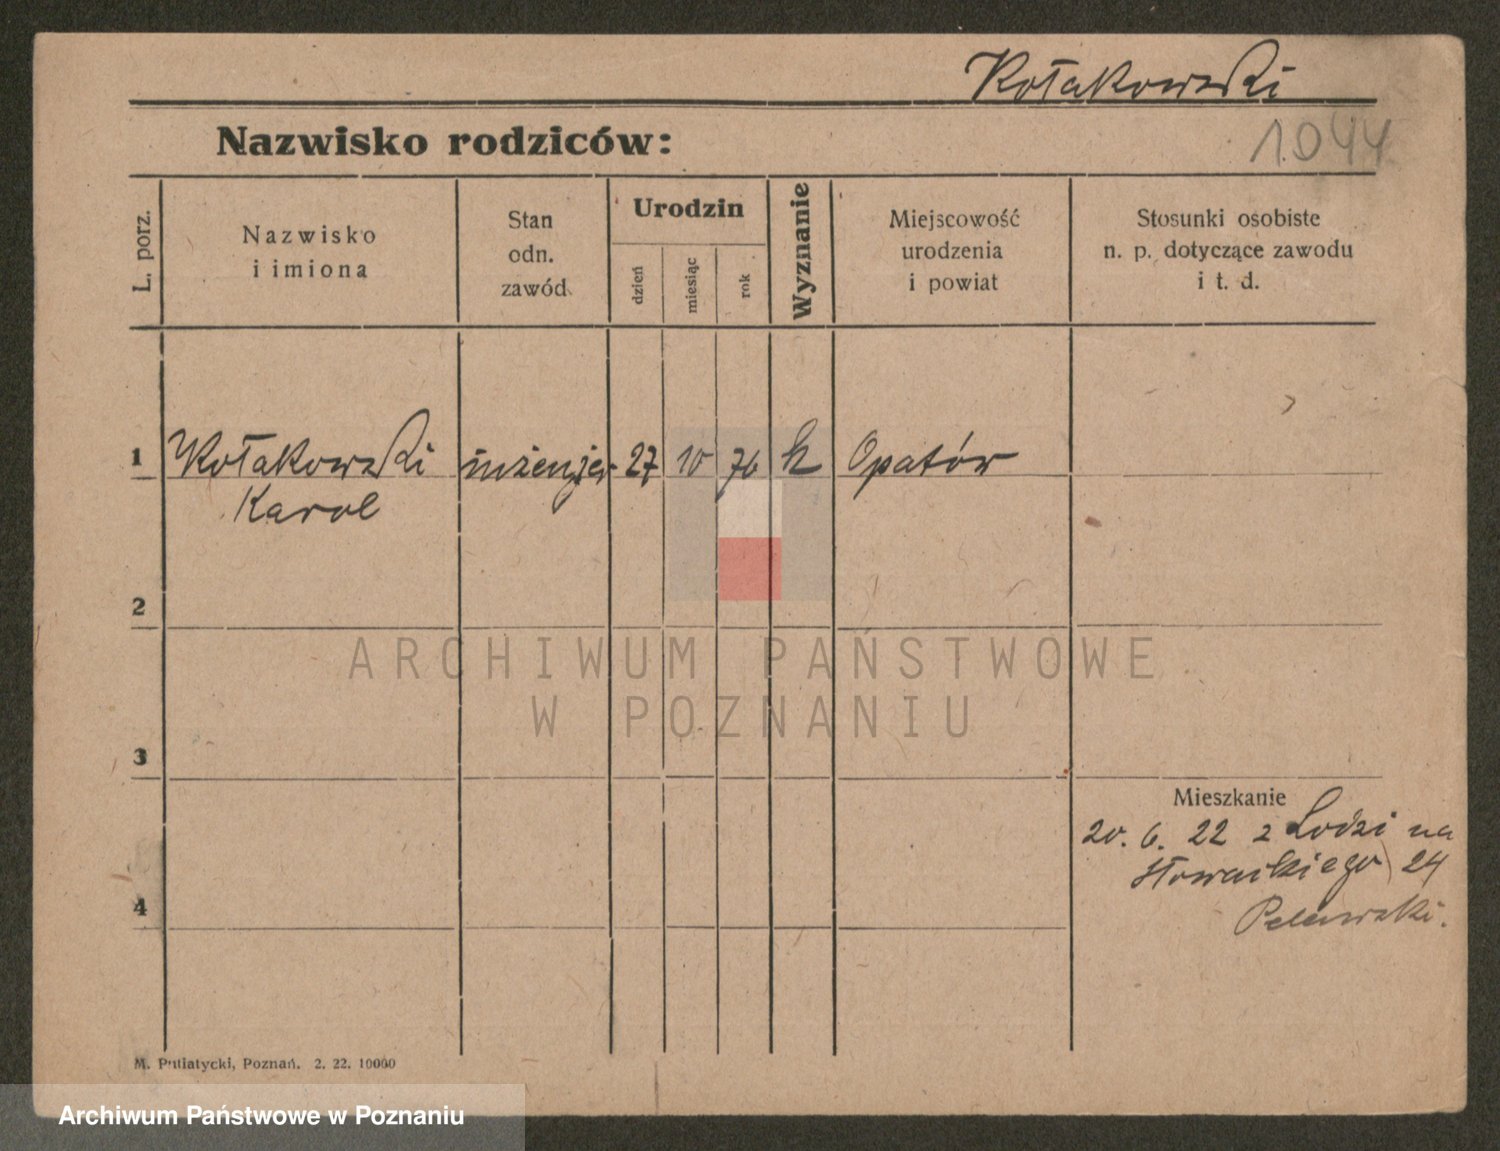 Kołakowski
Nazwisko rodziców:
1.044
L. porz.
Nazwisko
i imiona
Stan
odn.
zawód
Urodzin
dzień
miesiąc
rok
Wyznanie
Miejscowość
urodzenia
i powiat
Stosunki osobiste
n. p. dotyczące zawodu
i t. d.
1 Kołakowski inżenjer 27 10 76 k Opatów
Karol
2
ARCHIWUM PAŃSTWOWE
W POZNANIU
3
Mieszkanie
20. 6. 22 z Łodzi na
Słowackiego 24
4
M. Putiatycki, Poznań. 2. 22. 10000
Archiwum Państwowe w Poznaniu